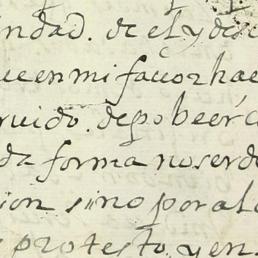 indad. de el y de
ue en mi favor hae
ruido. depobeer
da forma no ser de
ion sino por al
s protesto y en